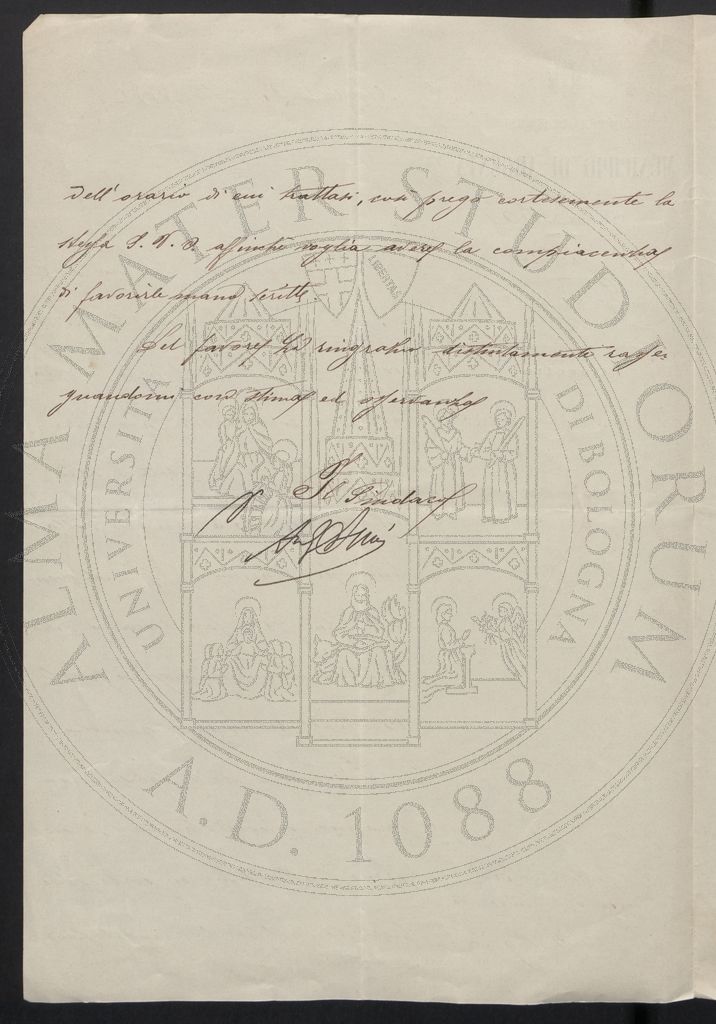 dell'orario di cui trattasi, così prego cortesemente la
stessa S. V. affinchè voglia avere la compiacenza
di favorirle mano scritte.
Del favore La ringrazio distintamente rasse-
gnandomi con stima ed osservanza
Il Sindaco
ALMA MATER STUDIORUM
UNIVERSITÀ DI BOLOGNA
LIBERTAS
A.D. 1088